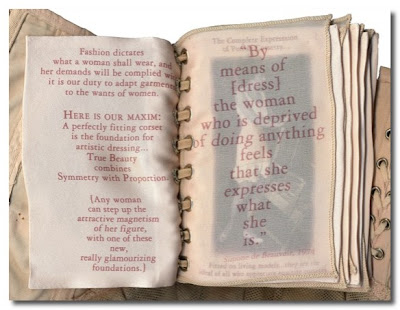 Fashion dictates
what a woman shall wear, and
her demands will be complied with
it is our duty to adapt garments
to the wants of women.
HERE IS OUR MAXIM:
A perfectly fitting corset
is the foundation for
artistic dressing...
True Beauty
combines
Symmetry with Proportion.
[Any woman
can step up the
attractive magnetism
of her figure,
with one of these
new,
really glamourizing
foundations.]
The Complete Expression
"By
means of
[dress]
the woman
who is deprived
of doing anything
feels
that she
expresses
what
she
is."
Simone de Beauvoir,
Fitted on living models